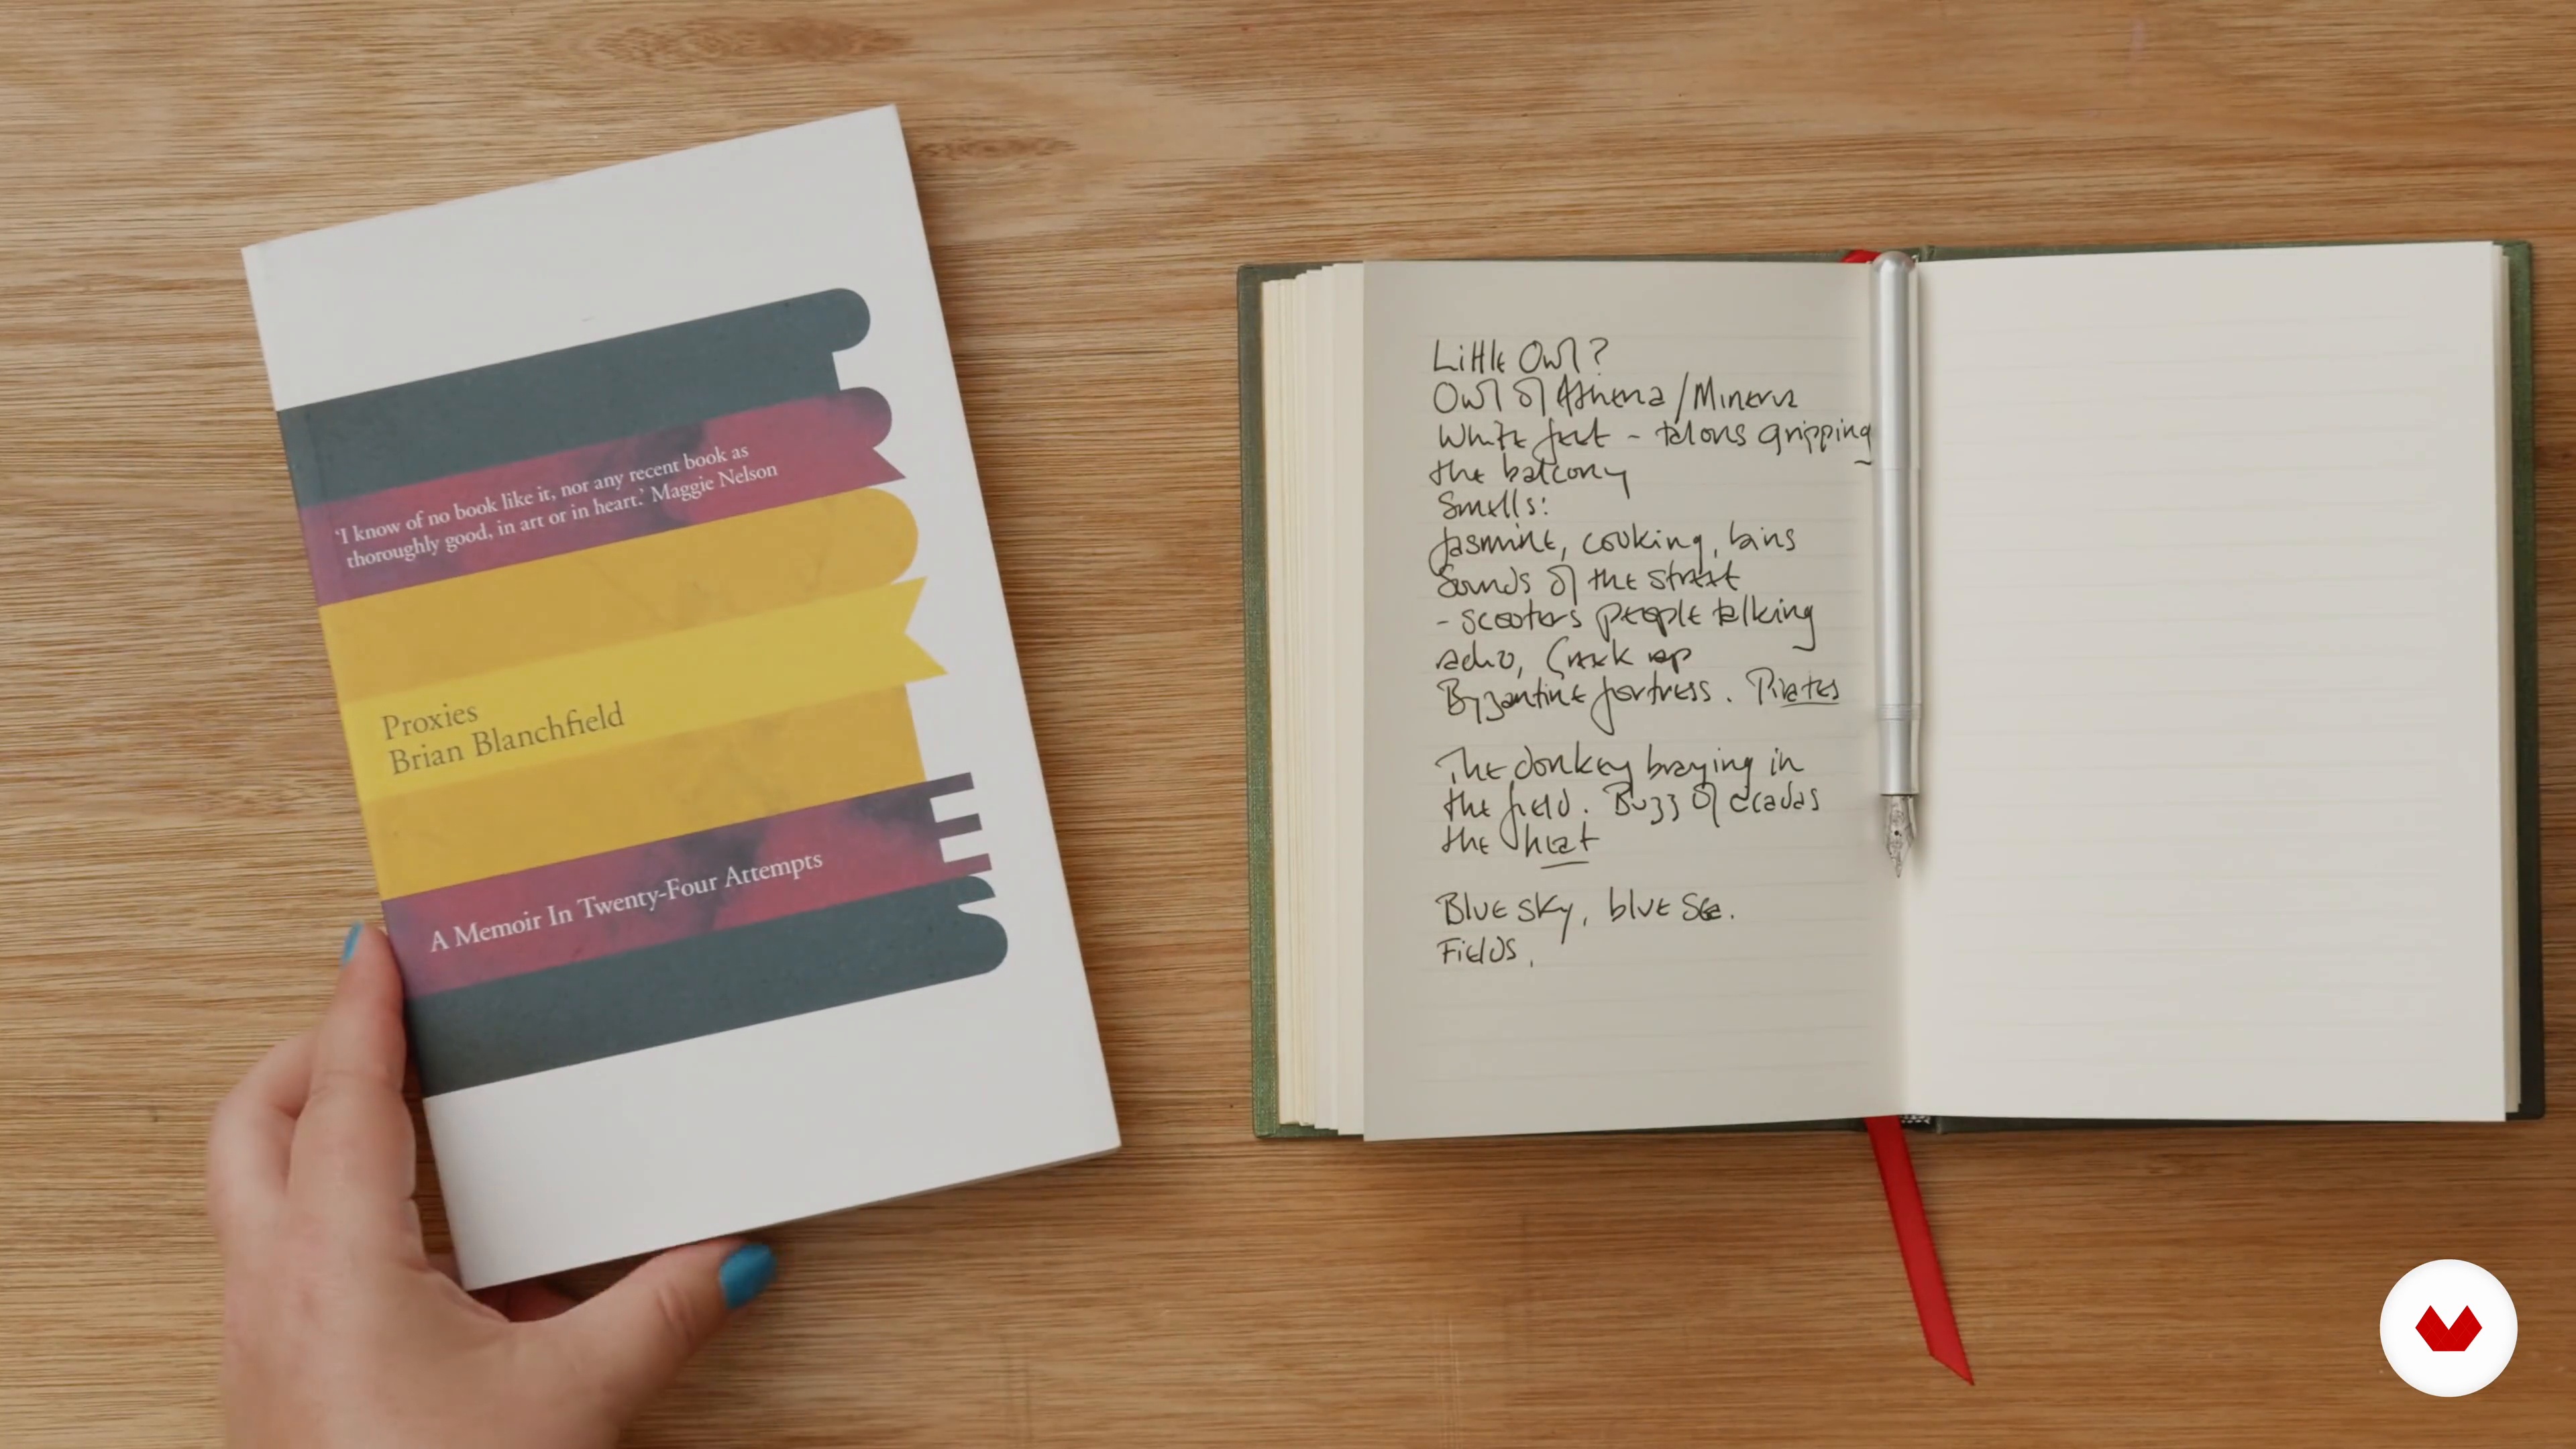 'I know of no book like it, nor any recent book as
thoroughly good, in art or in heart.' Maggie Nelson
Proxies
Brian Blanchfield
A Memoir In Twenty-Four Attempts
Little Owl?
Owl of Athena/Minerva
White feet - talons gripping
the balcony
Smells:
Jasmine, cooking, bins
Sounds of the street
- scooters people talking
radio, Greek rap
Byzantine fortress. Pirates
The donkey braying in
the field. Buzz of cicadas
the heat
Blue sky, blue sea.
Fields,